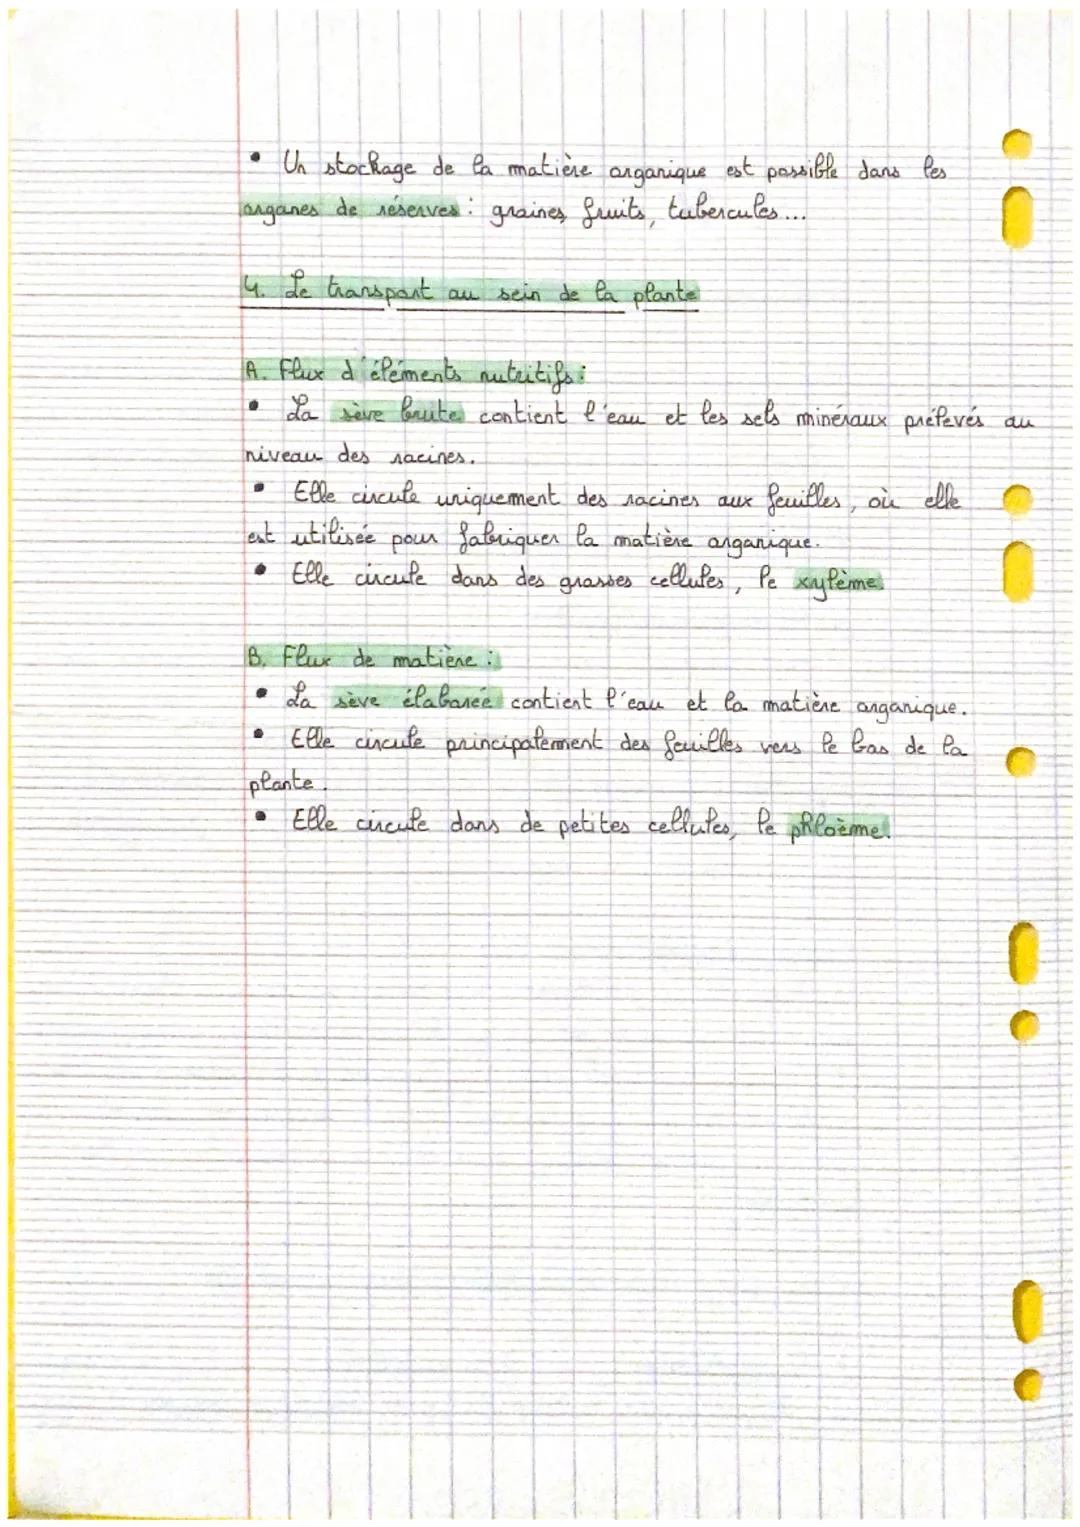 • Un stockage de la matière organique est possible dans les
organes de réserves : graines, fruits, tubercules...
4. Le transport au sein de la plante
A. Flux d'éléments nutritifs :
• La sève brute contient l'eau et les sels minéraux prélevés au
niveau des racines.
• Elle circule uniquement des racines aux feuilles, où elle
est utilisée pour fabriquer la matière organique.
• Elle circule dans des grosses cellules, le xylème.
B. Flux de matière :
• La sève élaborée contient l'eau et la matière organique.
• Elle circule principalement des feuilles vers le bas de la
plante.
• Elle circule dans de petites cellules, le phloème.